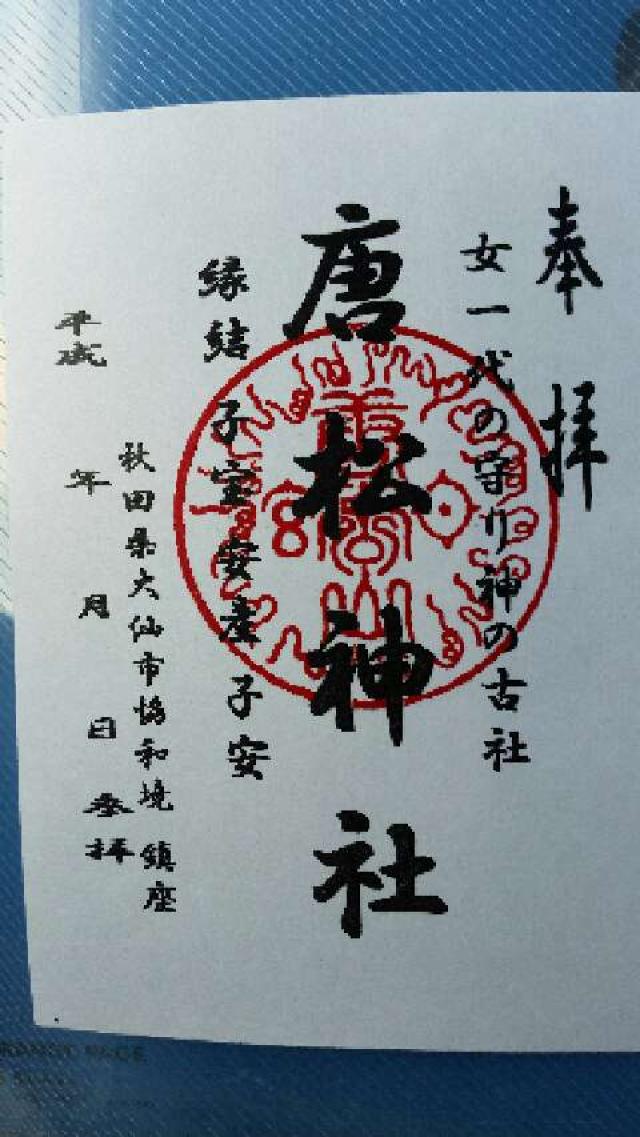 奉拝
女一代の守り神の古社
唐松神社
縁結 子宝 安産 子安
秋田県大仙市協和境 鎮座
平成 年 月 日 参拝